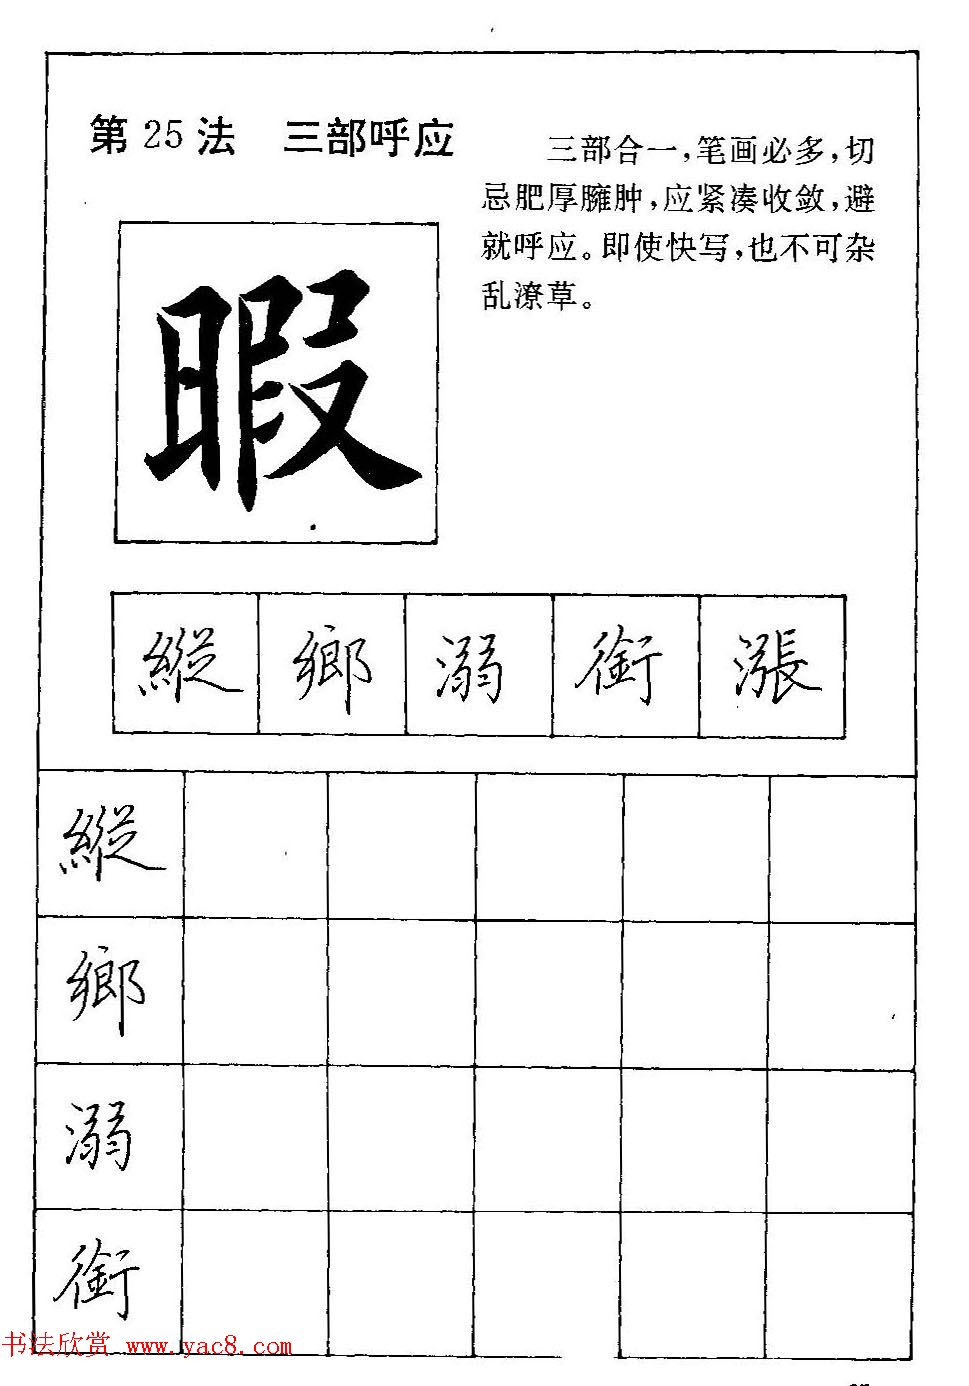 第25法 三部呼应
三部合一，笔画必多，切
忌肥厚臃肿，应紧凑收敛，避
就呼应。即使快写，也不可杂
乱潦草。
暇
縱 鄉 溺 銜 漲
縱
鄉
溺
銜
书法欣赏 www.yac8.com